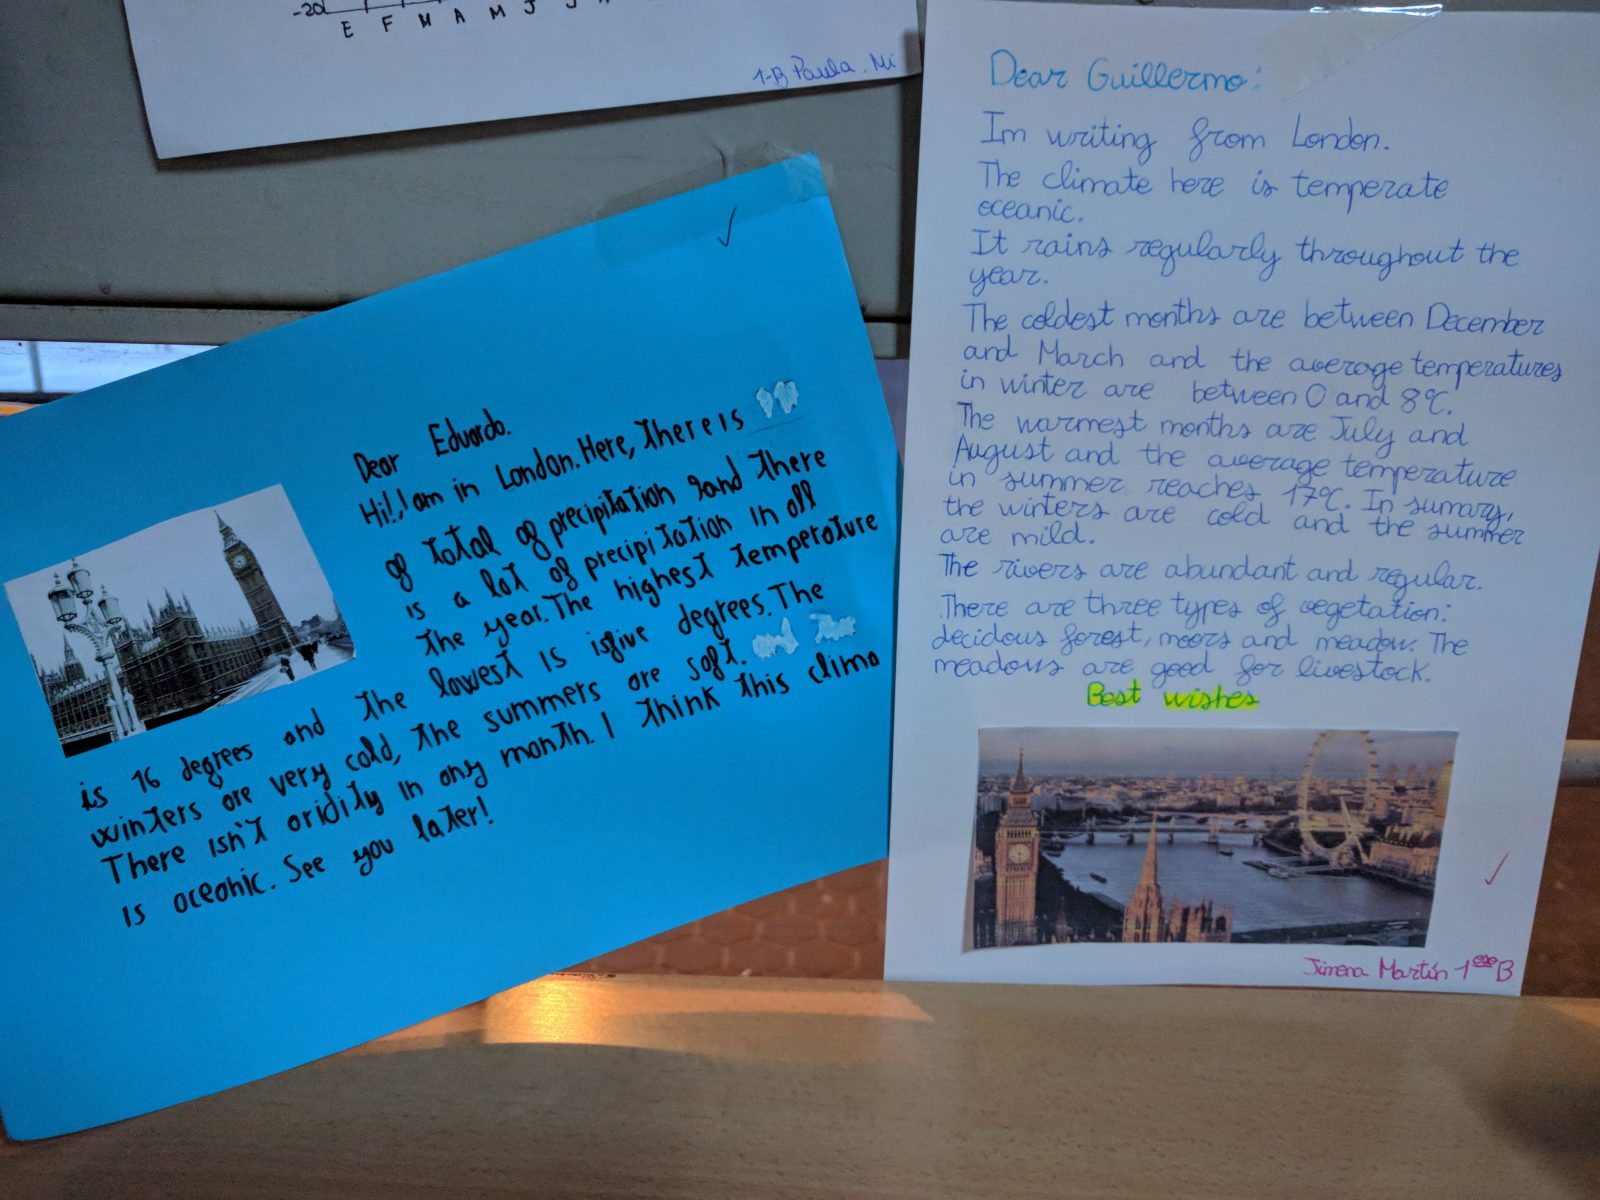 -20
E F M A M J J
1-B Paula. Mi
Dear Eduardo.
Hi!, I am in London. Here, there is
of total of precipitation and there
is a lot of precipitation in all
the year. The highest temperature
is 16 degrees and the lowest is five degrees. The
winters are very cold, the summers are soft.
There isn't aridity in any month. I think this clima
is oceanic. See you later!
Dear Guillermo:
Im writing from London.
The climate here is temperate
oceanic.
It rains regularly throughout the
year.
The coldest months are between December
and March and the average temperatures
in winter are between 0 and 8ºC.
The warmest months are July and
August and the average temperature
in summer reaches 17ºC. In sumary,
the winters are cold and the summer
are mild.
The rivers are abundant and regular.
There are three types of vegetation:
decidous forest, moors and meadow. The
meadows are good for livestock.
Best wishes
Jimena Martín 1ºESO B